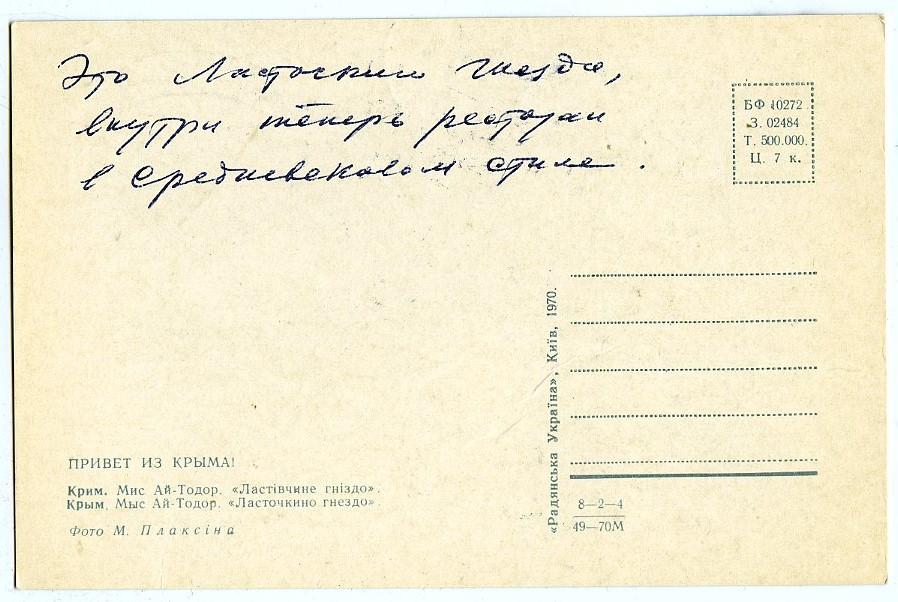 Это Ласточкино гнездо,
внутри теперь ресторан
в средневековом стиле.
БФ 10272
З. 02484
Т. 500.000.
Ц. 7 к.
«Радянська Україна», Київ, 1970.
ПРИВЕТ ИЗ КРЫМА!
Крим. Мис Ай-Тодор. «Ластівчине гніздо».
Крым. Мыс Ай-Тодор. «Ласточкино гнездо».
Фото М. Плаксіна
8—2—4
49—70М